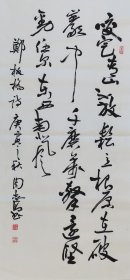 咬定青山不放鬆立根原在破
巖中千磨萬擊還堅
勁任爾東西南北風
鄭板橋詩庚寅之秋周